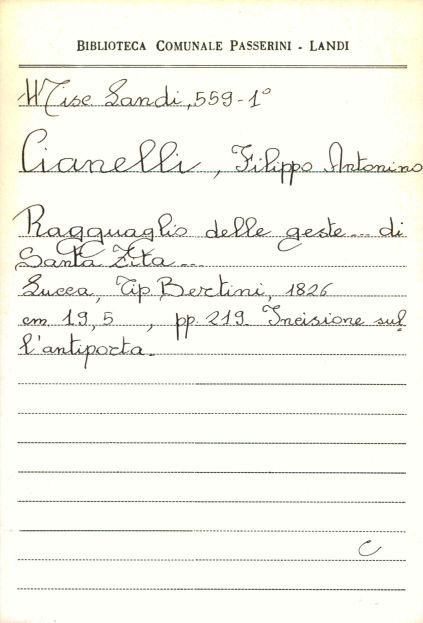 BIBLIOTECA COMUNALE PASSERINI - LANDI
Misc. Landi, 559-1°
Cianelli, Filippo Antonino
Ragguaglio delle geste... di
Santa Zita...
Lucca, Tip. Bertini, 1826
cm 19,5 , pp. 219. Incisione sul-
l'antiporta.
C